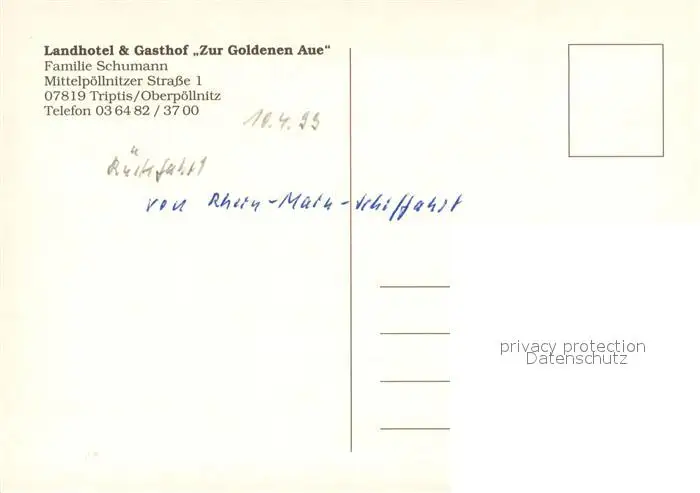 Landhotel & Gasthof „Zur Goldenen Aue“
Familie Schumann
Mittelpöllnitzer Straße 1
07819 Triptis/Oberpöllnitz
Telefon 03 64 82 / 37 00
10.4.99
Rückfahrt
von Rhein-Main-Schiffahrt
privacy protection
Datenschutz